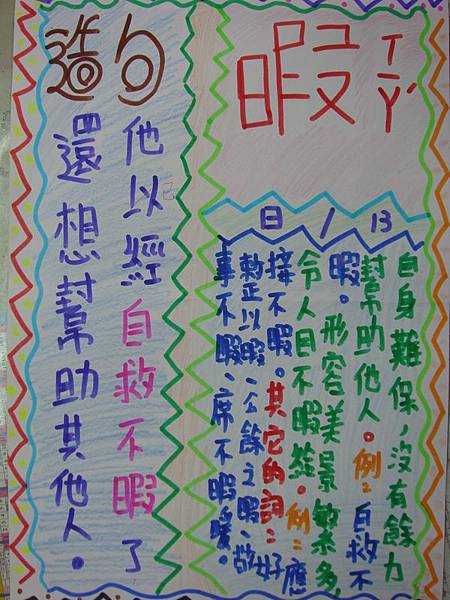 暇 ㄒㄧㄚˊ
日 / 13
自身難保,沒有餘力
幫助他人。例:自救不
暇。形容美景繁多,
令人目不暇給。例:應
接不暇。其它的詞:好
整以暇、公餘之暇、
事不暇、席不暇暖。
造句
他以經自救不暇了
已
還想幫助其他人。